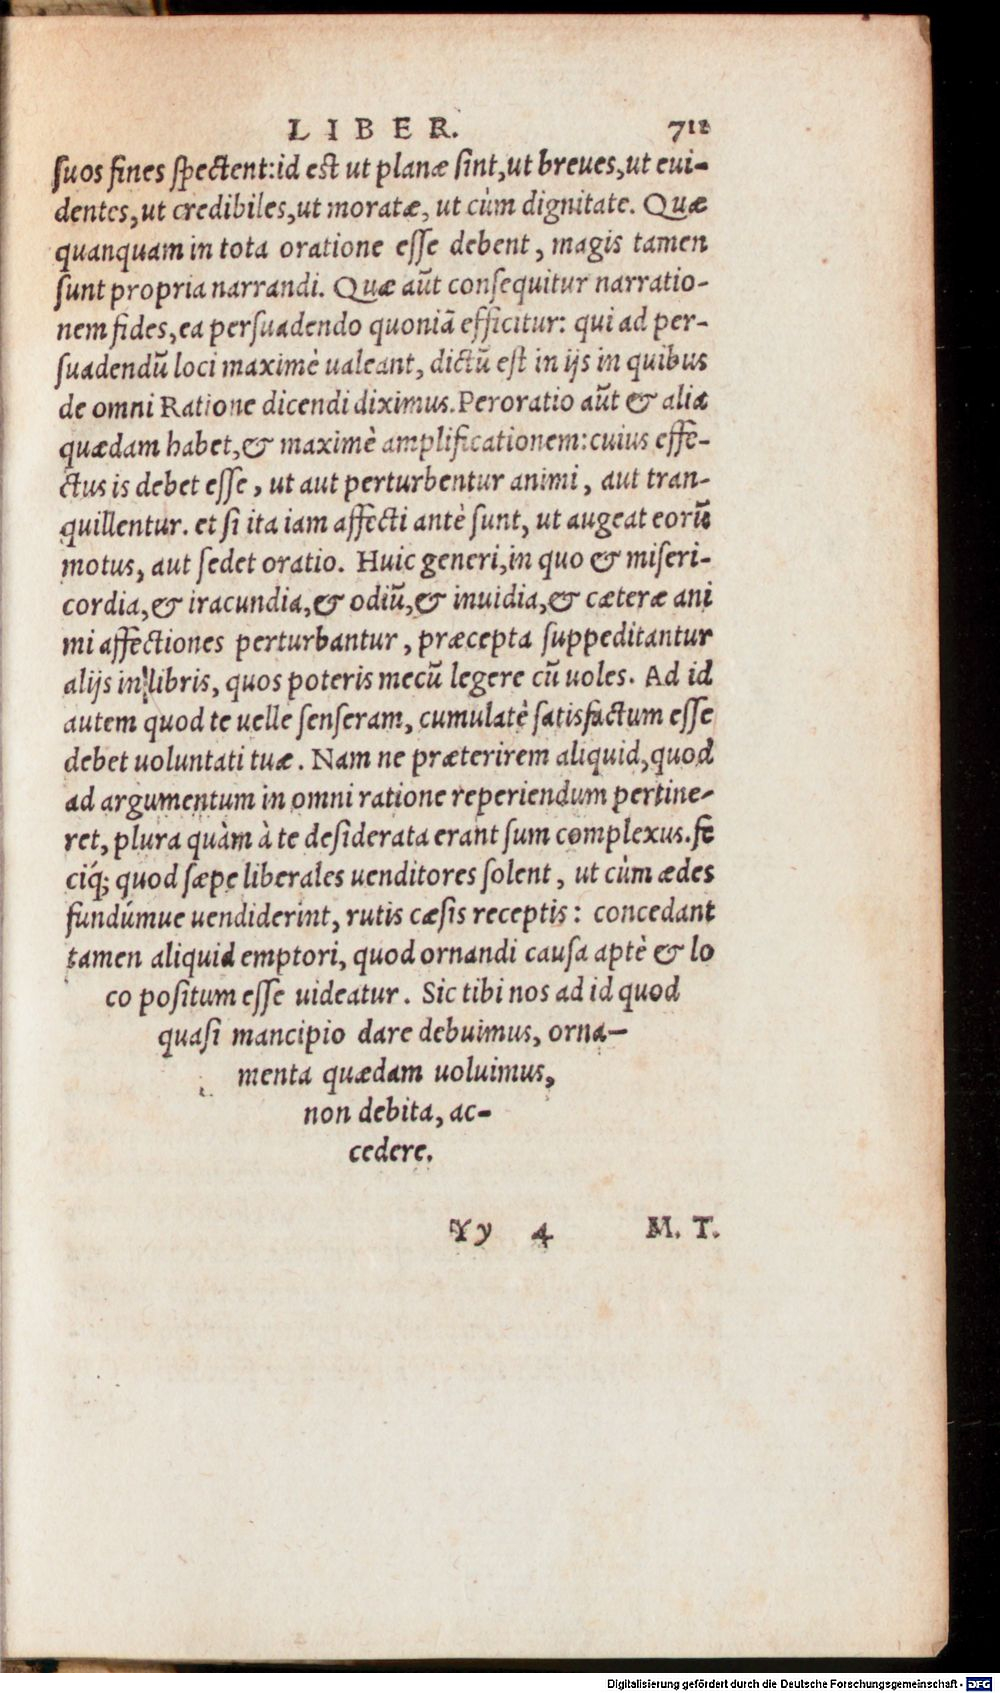 LIBER. 711
suos fines spectent:id est ut planæ sint,ut breves,ut evi-
dentes,ut credibiles,ut moratæ, ut cùm dignitate. Quæ
quanquam in tota oratione esse debent, magis tamen
sunt propria narrandi. Quæ aūt consequitur narratio-
nem fides,ea persuadendo quoniā efficitur: qui ad per-
suadendū loci maximè ualeant, dictū est in ijs in quibus
de omni Ratione dicendi diximus. Peroratio aūt & alia
quædam habet,& maximè amplificationem:cuius effe-
ctus is debet esse, ut aut perturbentur animi, aut tran-
quillentur. et si ita iam affecti antè sunt, ut augeat eorū
motus, aut sedet oratio. Huic generi,in quo & miseri-
cordia,& iracundia,& odiū,& inuidia,& cæteræ ani
mi affectiones perturbantur, præcepta suppeditantur
alijs in libris, quos poteris mecū legere cū uoles. Ad id
autem quod te uelle senseram, cumulatè satisfactum esse
debet uoluntati tuæ. Nam ne præterirem aliquid,quod
ad argumentum in omni ratione reperiendum pertine-
ret, plura quàm à te desiderata erant sum complexus. fe
ciq́; quod sæpe liberales uenditores solent, ut cùm ædes
fundúmue uendiderint, rutis cæsis receptis: concedant
tamen aliquid emptori, quod ornandi causa aptè & lo
co positum esse uideatur. Sic tibi nos ad id quod
quasi mancipio dare debuimus, orna-
menta quædam uoluimus,
non debita, ac-
cedere.
Yy 4 M. T.
Digitalisierung gefördert durch die Deutsche Forschungsgemeinschaft - DFG